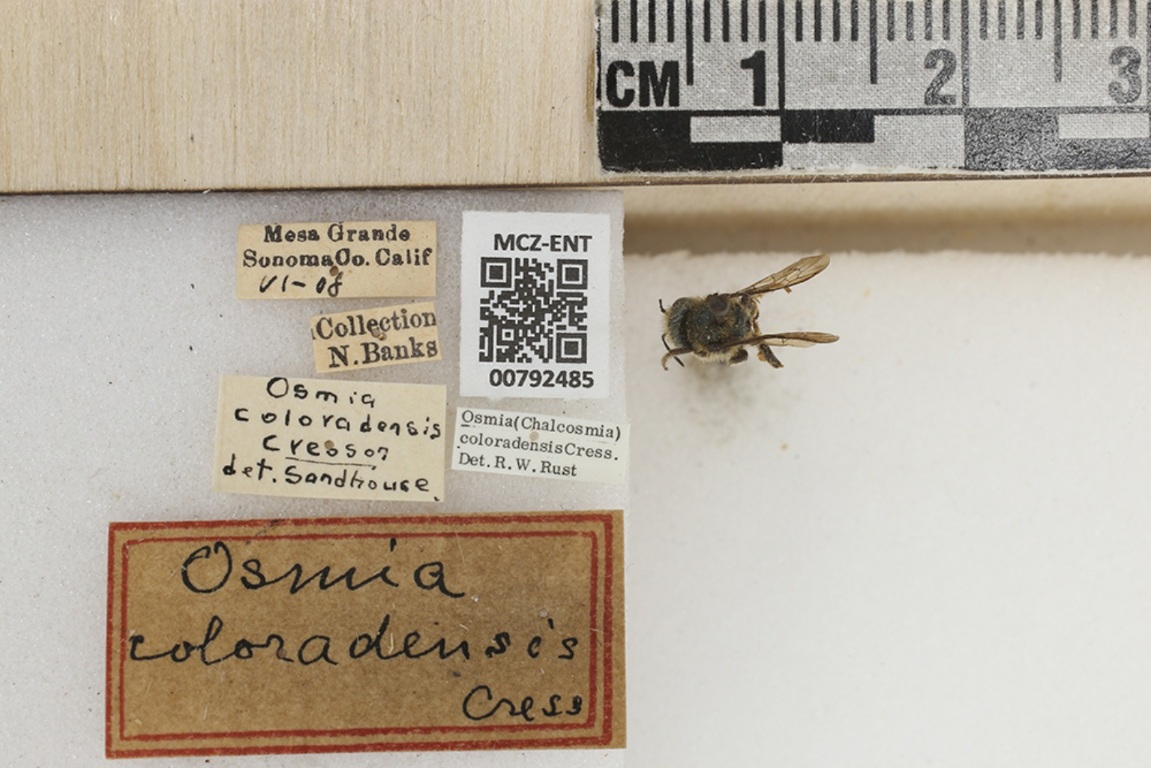 CM 1 2 3
Mesa Grande
Sonoma Co. Calif
VI-08
Collection
N. Banks
MCZ-ENT
00792485
Osmia
coloradensis
Cresson
det. Sandhouse.
Osmia (Chalcosmia)
coloradensis Cress.
Det. R. W. Rust
Osmia
coloradensis
Cress